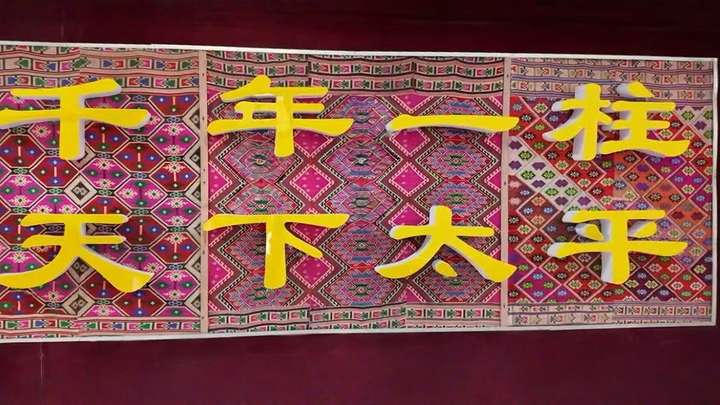 千年一柱
天下太平